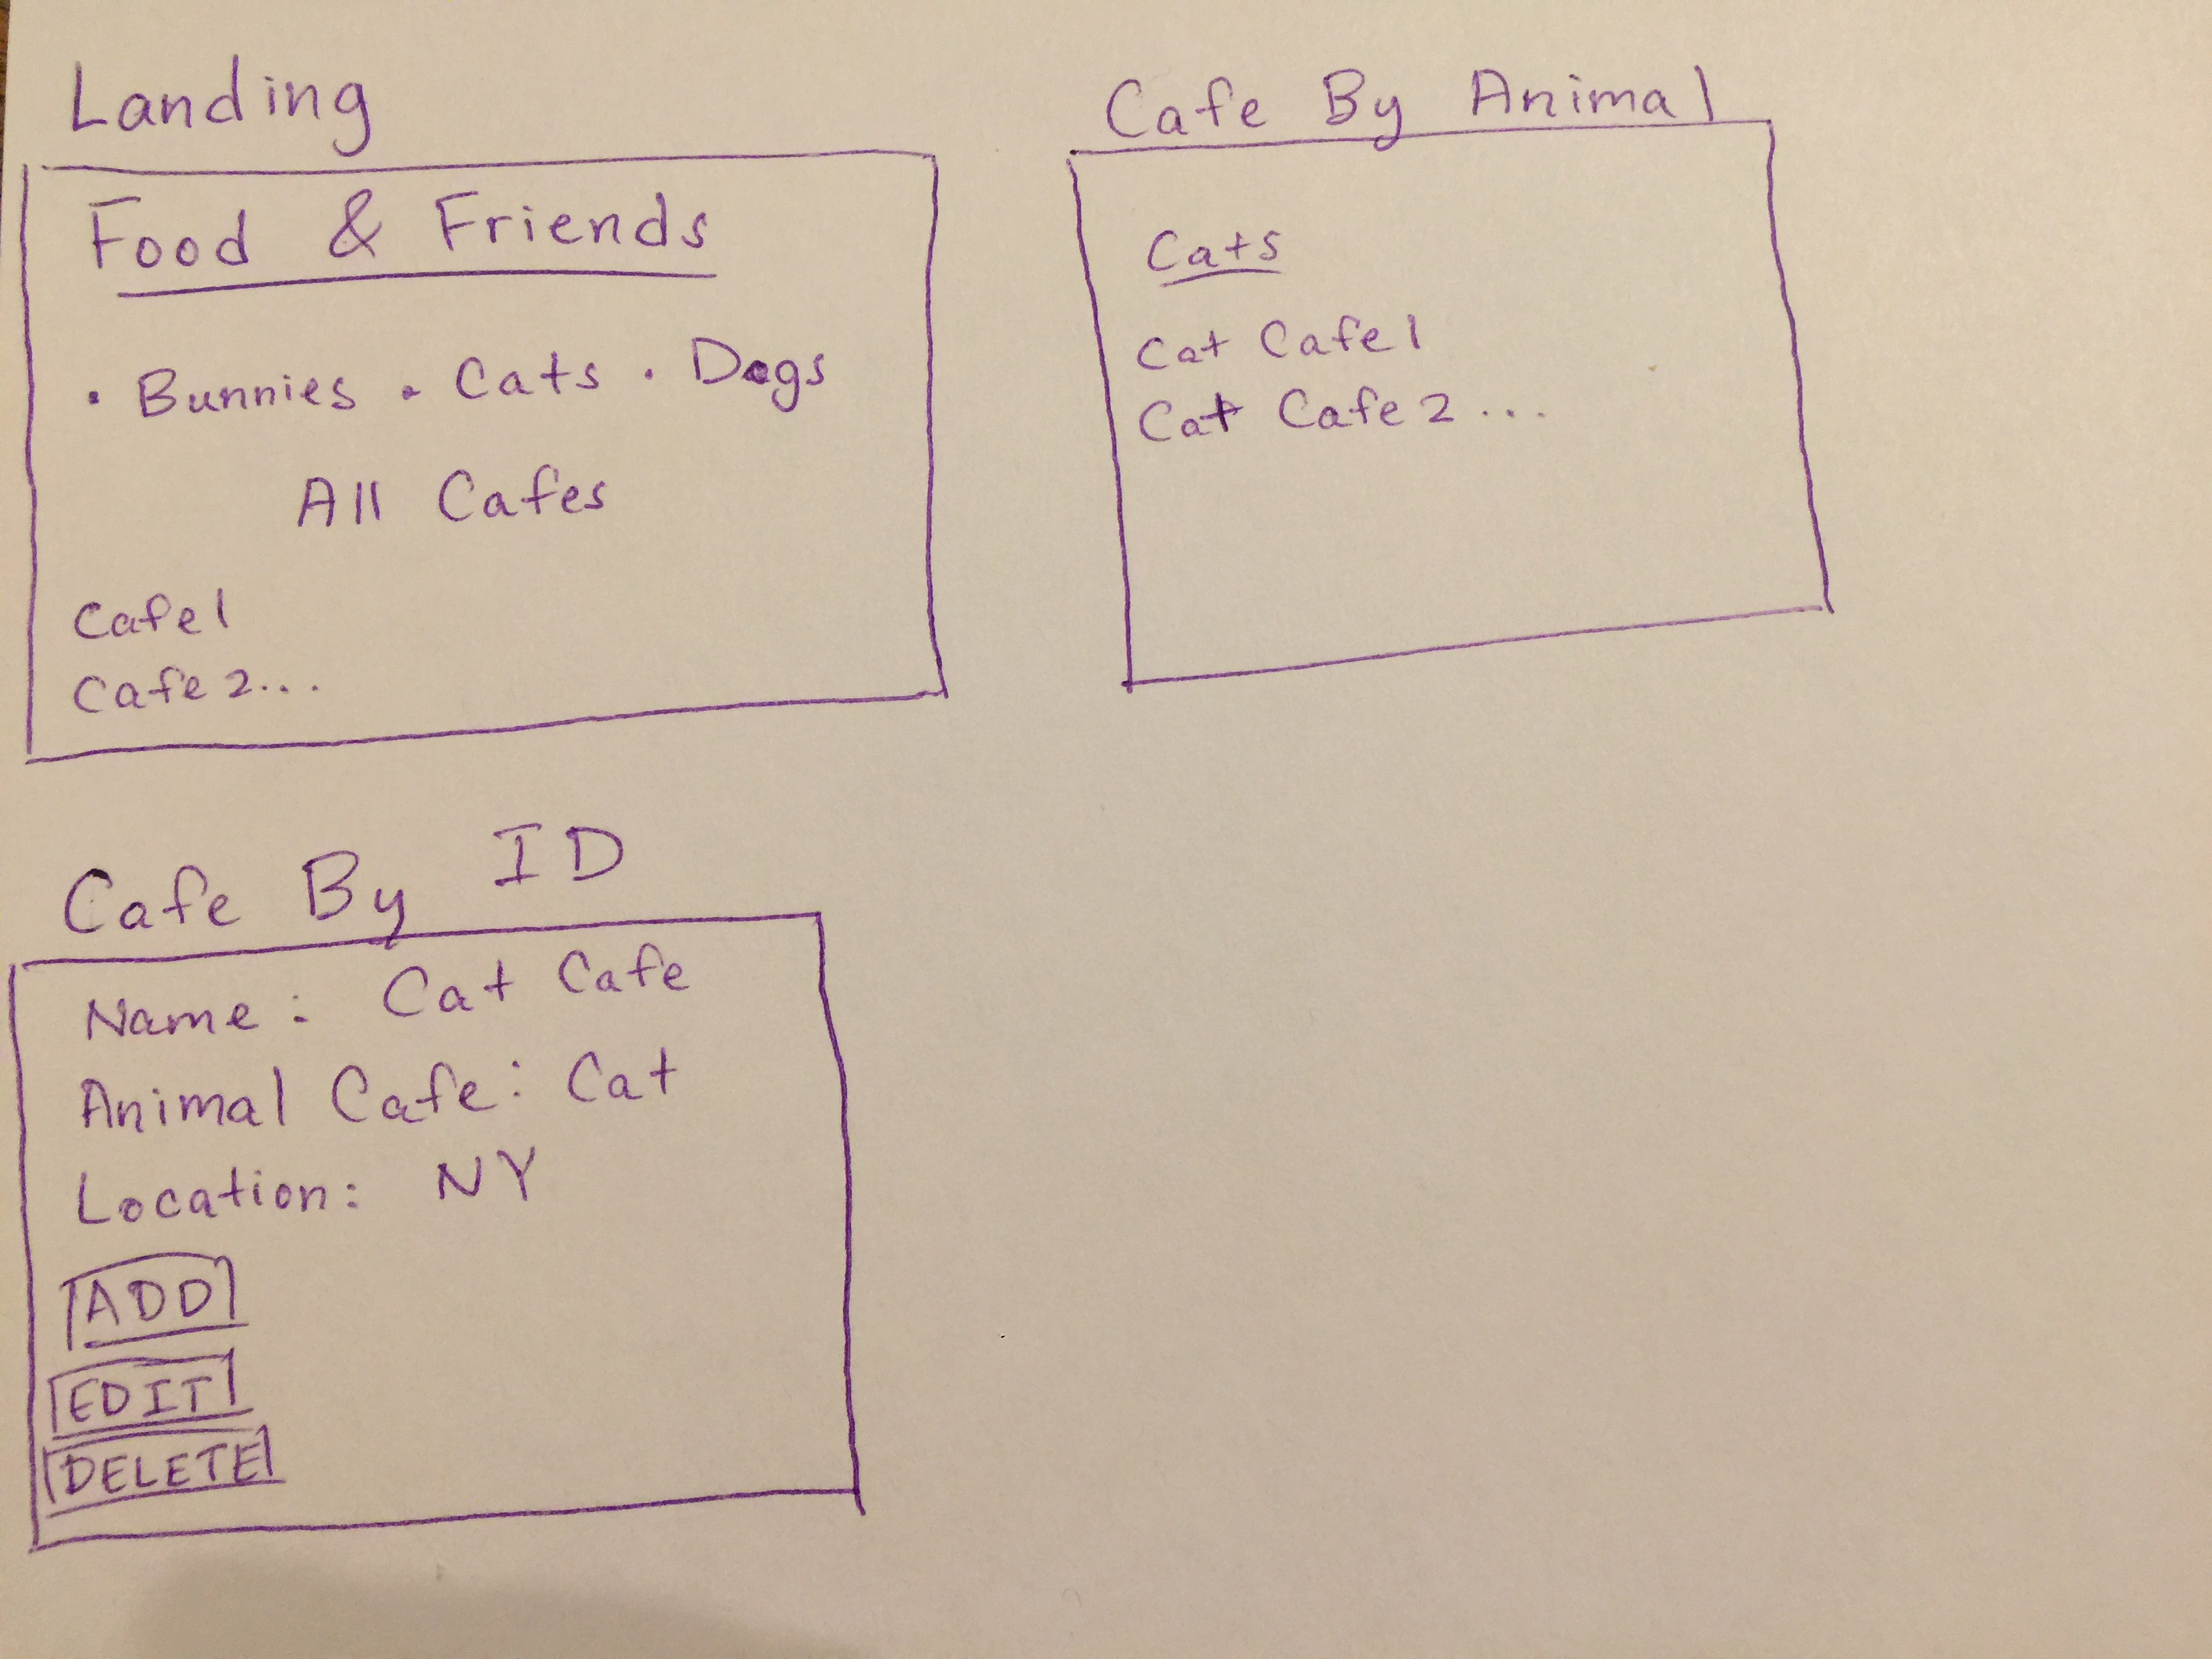 Landing
Food & Friends
• Bunnies • Cats • Dogs
All Cafes
Cafe 1
Cafe 2...
Cafe By Animal
Cats
Cat Cafe 1
Cat Cafe 2...
Cafe By ID
Name: Cat Cafe
Animal Cafe: Cat
Location: NY
ADD
EDIT
DELETE